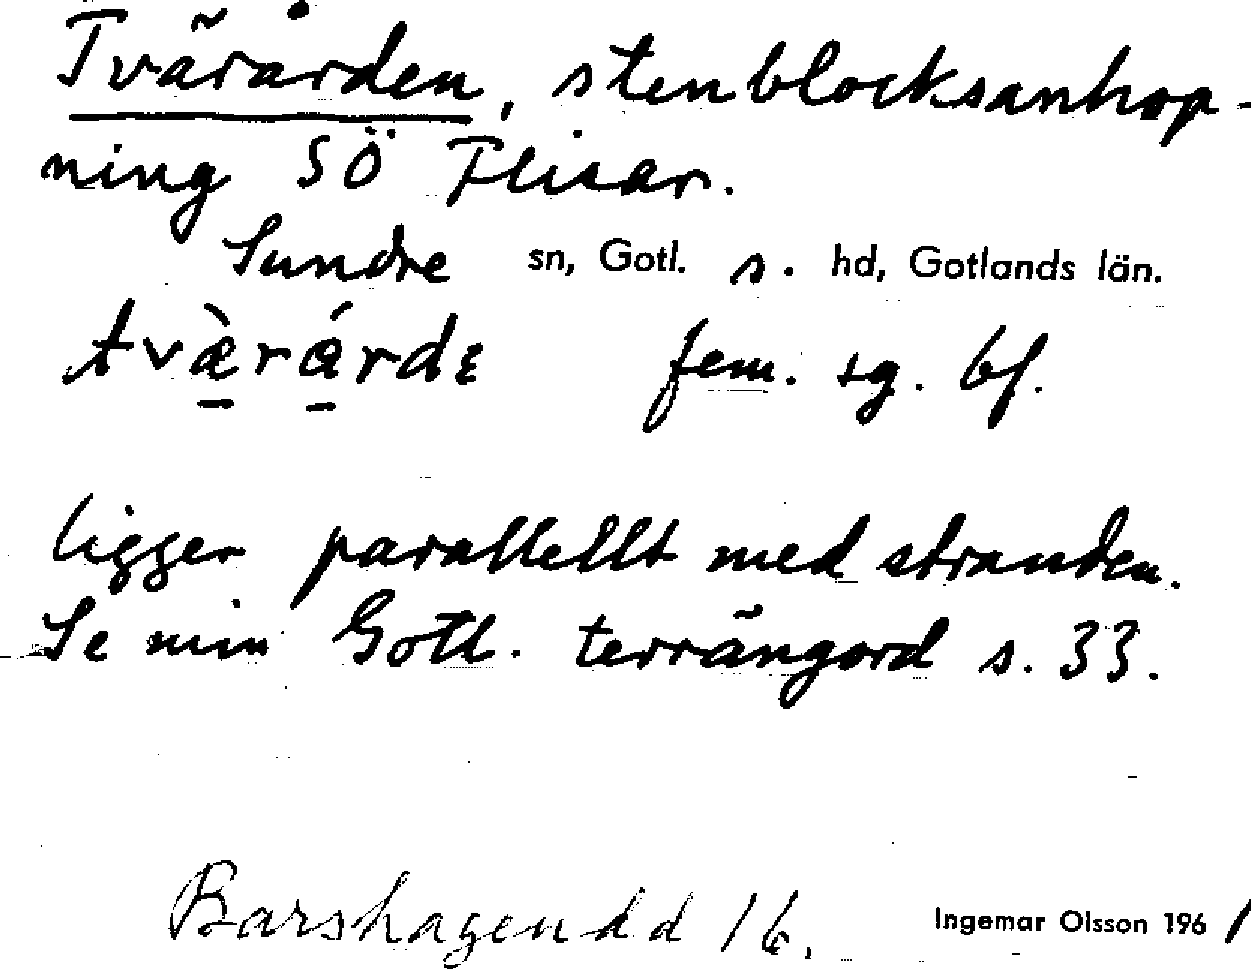 Tvärården, stenblocksanhop-
ning SÖ Flisar.
Sundre sn, Gotl. s. hd, Gotlands län.
tvæ̀rårdɛ fem. sg. bf.
ligger parallellt med stranden.
Se min Gotl. terrängord s. 33.
Barshagen dd 16. Ingemar Olsson 1961